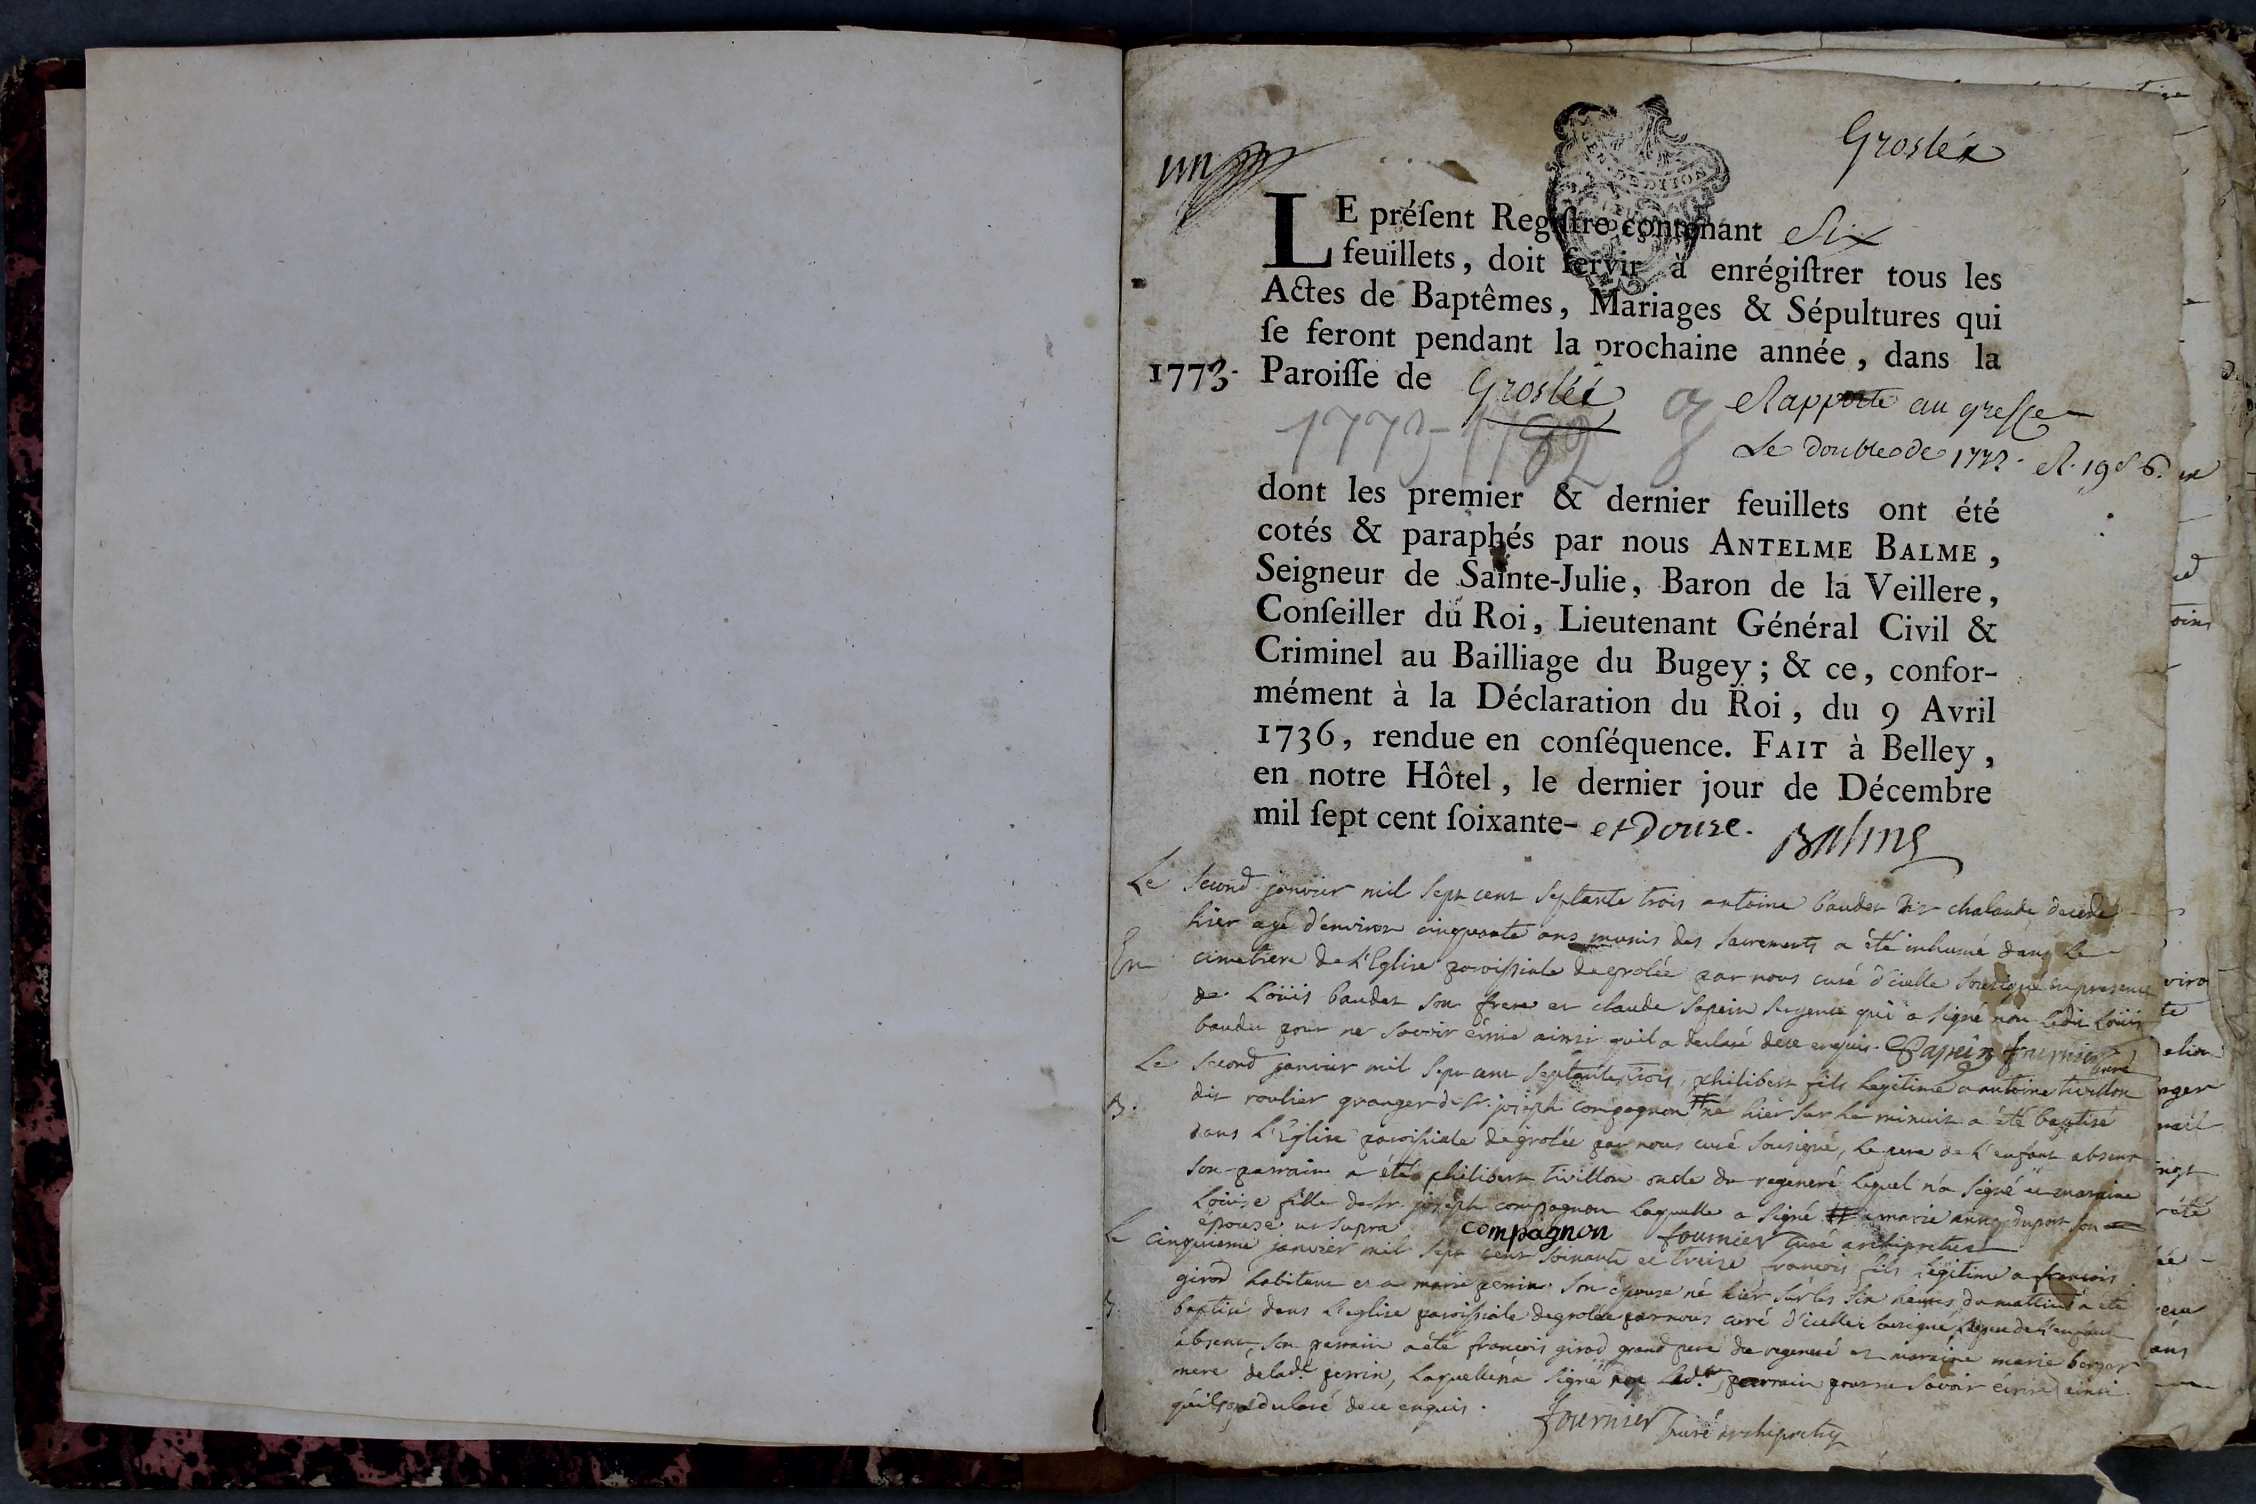 un
Groslée
LE préſent Regiſtre contenant Six
feuillets, doit ſervir à enrégiſtrer tous les
Actes de Baptêmes, Mariages & Sépultures qui
ſe feront pendant la prochaine année, dans la
1773. Paroiſſe de Groslée
Rapporte au greffe
1773-1782
Le double de 1772.
dont les premier & dernier feuillets ont été
cotés & paraphés par nous ANTELME BALME,
Seigneur de Sainte-Julie, Baron de la Veillere,
Conſeiller du Roi, Lieutenant Général Civil &
Criminel au Bailliage du Bugey; & ce, confor-
mément à la Déclaration du Roi, du 9 Avril
1736, rendue en conſéquence. FAIT à Belley,
en notre Hôtel, le dernier jour de Décembre
mil ſept cent ſoixante- et Douze. Balme
Le second janvier mil sept cent septante trois antoine baudet dit chalande decedé
hier agé d'environ cinquante ans munis des sacrements a été inhumé dans le
En cimetiere de L'Eglise paroissiale de grolée par nous curé d'icelle sousigné en presence
de Loüis baudet son frere et claude sapein qui a signé non ledit Loüis
baudet pour ne savoir écrire ainsi qu'il a declaré de ce enquis. Sapein fournier curé
Le second janvier mil sept cent septante trois, philibert fils legitime a antoine tivillon
B. dit roulier granger de Sr. joseph compagnon # né hier sur le minuit a été baptisé
dans L'Eglise paroissiale de grolée par nous curé sousigné, le pere de l'enfant absent
son parrain a été philibert tivillon oncle du regeneré lequel n'a signé et maraine
Loüise fille de Sr. joseph compagnon laquelle a signé # a marie anne dupont son
épouse ut supra compagnon fournier curé archipretre
Le cinquieme janvier mil sept cent soixante et treize françois fils légitime a françois
girod habitant et a marie perrin son épouse né hier sur les six heures du mattin a été
B. baptisé dans L'eglise paroissiale de grolée par nous curé d'icelle sousigné, le pere de l'enfant
absent, son parrain a été françois girod grand pere du regeneré et maraine marie
mere de lad.te perrin, laquelle n'a signé non led.t parrain pour ne savoir écrire ainsi
qu'ils ont declaré de ce enquis. fournier curé archipretre